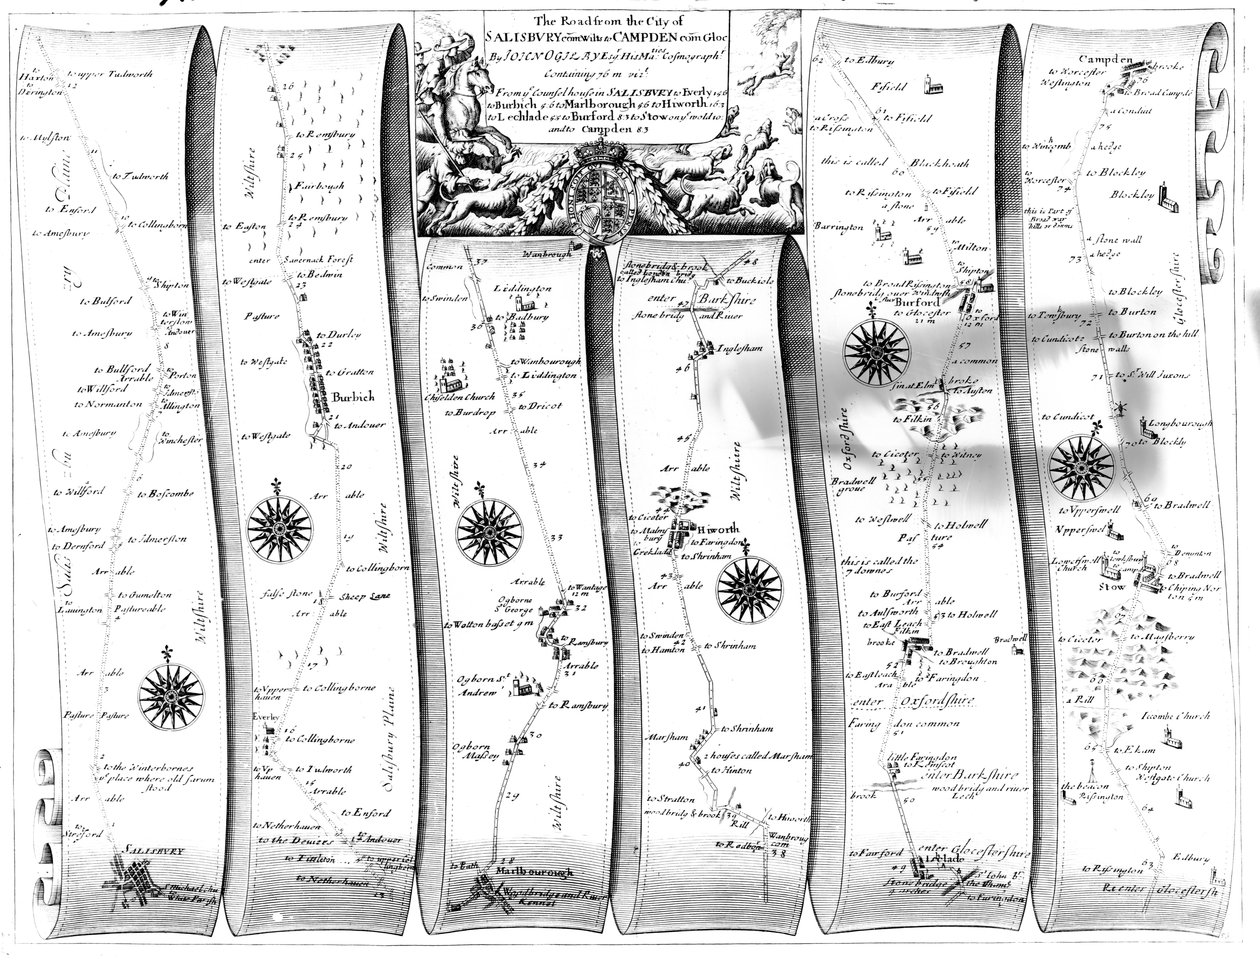 The Road from the City of
SALISBVRY com Wilts to CAMPDEN com Gloc
By IOHN OGILBY Esqr. His Maties Cosmographr
Containing 76 m vizt.
From ye Counsel house in SALISBVRY to Everly
to Burbich 5 6 to Marlborough 5 6 to Hiworth
to Lechlade to Burford 8 3 to Stow on ye wold
and to Campden 8 3
to Haxton
to Derington
to upper Tudworth
12
to Mylston
11
to Tudworth
to Enford
to Collingborn
to Amesbury
to Shipton
to Bulford
to Amesbury
8
to Bullford
Arrable
to Porton
to Willford
to Normanton
Allington
to Amesbury
to Winchester
6
to Willford
to Boscombe
to Amesbury
to Dernford
to Idmerston
Arr able
to Gumelton
Pastureable
4
Wiltshire
Arr able
3
Pasture Pasture
2
to the Winterbornes
ye place where old sarum
stood
Arr able
1
to Stretford
SALISBURY
26
to Remsbury
Wiltshire
25
Fairbough
to Remsbury
24
to Easton
enter Savernack Forest
to Westgate
to Bedwin
23
Pasture
to Durley
22
to Westgate
to Gratton
Burbich
21
to Andover
to Westgate
20
Arr able
19
Wiltshire
to Collingborn
false stone
18
Sheep Lane
Arr able
17
to Vpper
haven
to Collingborne
Everley
16
to Collingborne
to Vp
haven
to Tudworth
15
Arrable
to Enford
to Netherhaven
to the Devizes
to Andover
to Titcleton
to Netherhaven
13
Wanbrough
Common
37
to Swinden
Liddington
36
to Badbury
to Wanbourough
to Liddington
Chiselden Church
35
to Burdrop
to Dricot
Arr able
34
Wiltshire
33
Arrable
to Wantage
12 m
Ogborne
St. George
32
to Wotton basset 9 m
to Ramsbury
Arrable
31
Ogborn St.
Andrew
to Ramsbury
30
Ogborn
Massey
29
Wiltshire
to Bath
28
Marlbourough
Woodbridge and River
Kennet
stone bridg & brook
48
to Inglesham
to Buckiols
enter Barkshire
47
stone bridg and River
Inglesham
46
45
Arr able
Wiltshire
to Ciceter
to Malms
bury
Hiworth
to Faringdon
Creklade
to Shrinham
43
Arr able
to Swinden
42
to Hamton
to Shrinham
41
to Shrinham
Marsham
2 houses called Marsham
40
to Hinton
to Stratton
wood bridg & brook
39
Rill
to Hiworth
Wanbroug
com
to Redborn
38
62
to Edbury
Fifield
61
to Fifield
a Cross
to Rissington
this is called Blackheath
60
to Rissington
to Fifield
a stone
Arr able
59
Barrington
to Milton
to Shipton
to Broad Rissington
58
stone bridg over Windrush
fluv Burford
to Glocester
to Oxford
57
a common
a great Elme broke
to Alston
56
to Filkin
Oxfordshire
to Ciceter
to Witney
Bradwell
grove
55
to Westwell
to Holwell
Pas ture
54
this is called the
7 downes
to Burford
Arr able
to Aulsworth
53
to Holwell
to East Leach
Filkin
brooke
Bradwell
to Bradwell
to Broughton
52
to Eastleach
to Faringdon
Ara ble
enter Oxfordshire
Faring don common
51
little Faringdon
to Kemscot
enter Barkshire
wood bridg and river
Lech
brook
50
to Fairford
enter Glocestershire
Lechlade
49
St. John Br.
the Thames
Stone bridge
to Faringdon
Campden
to Worcester
brooke
Westington
76
to Broad Campde
a Conduit
75
to Wincomb
a hedge
to Worcester
74
to Blockley
Blockley
this is Part of
Broad way
hills or downs
a stone wall
a hedge
73
Glocestershire
to Blockley
to Tewxbury
to Burton
72
to Cundicote
to Burton on the hill
stone walls
71
to St. Will Juxons
to Cundicot
Longbourough
70
to Blockly
69
to Vpperswell
to Bradwell
Vpperswel
to Donnton
68
Lowerswell
Church
to Bradwell
Stow
to Chiping Nor
ton
to Ciceter
to Maugsberry
67
a Rill
66
Iccombe Church
65
to Eckam
to Shipton
Westgate Church
the beacon
Rissington
64
Edbury
63
to Rissington
Re enter Glocestersh